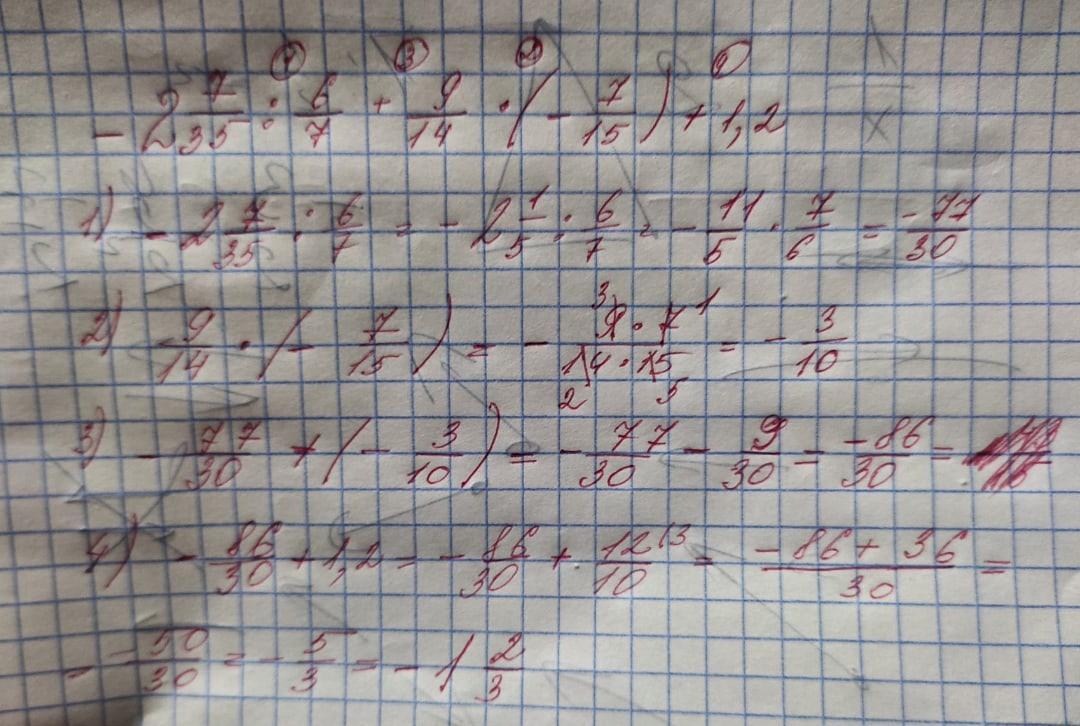 ① ③ ② ④
- 2 7/35 : 6/7 + 9/14 · (- 7/15) + 1,2
1) - 2 7/35 : 6/7 = - 2 1/5 : 6/7 = - 11/5 · 7/6 = -77/30
2) 9/14 · (- 7/15) = - 9 3 · 7 1/14 2 · 15 5 = - 3/10
3) - 77/30 + (- 3/10) = - 77/30 - 9/30 = -86/30 =
4) - 86/30 + 1,2 = - 86/30 + 12/10 (3 = -86 + 36/30 =
- -50/30 = - 5/3 = - 1 2/3